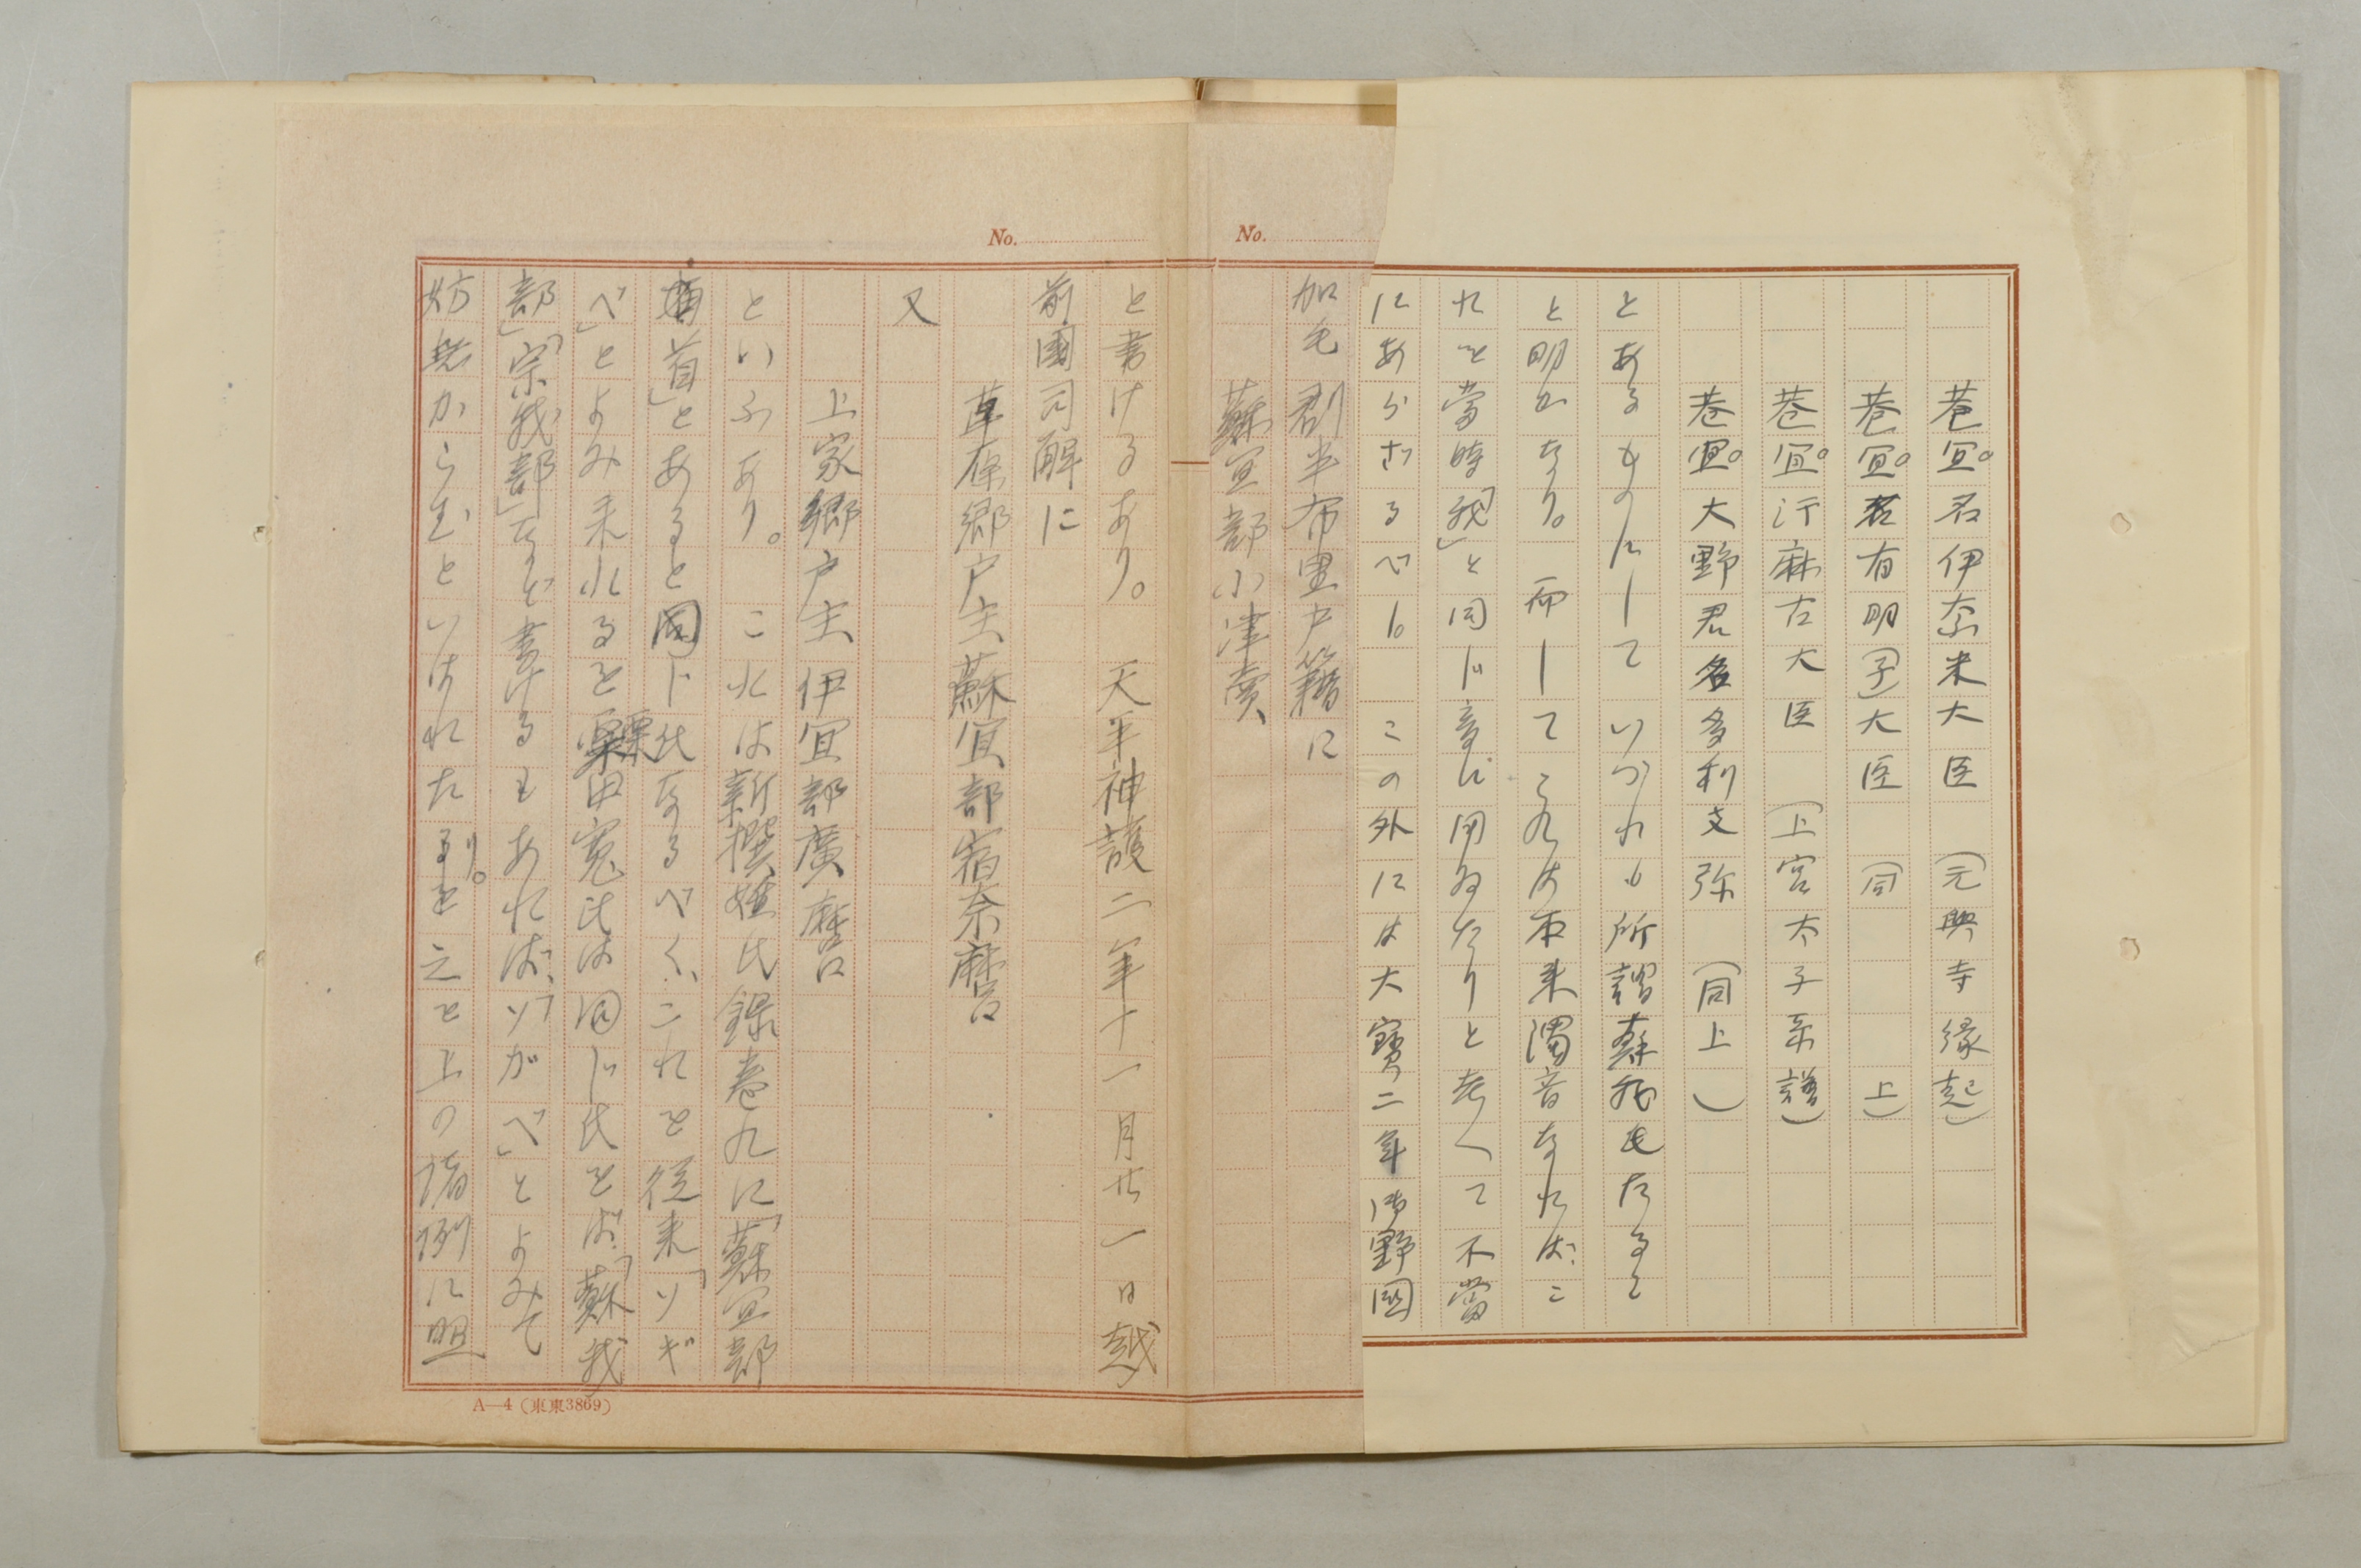 巷宜。君伊奈米大臣　（元興寺縁起）
巷宜。有明（子）大臣　（同　上）
巷宜。汙麻古大臣　（上宮太子系譜）
巷宜。大野君名多利支弥　（同上）
とあるものにしていづれも所謂蘇我氏たること
と明かなり。而してこれは本来濁音なればこ
れを當時「我」と同じ音に用ゐたりと考へて不當
にあらざるべし。この外には大寶二年御野國
加毛郡半布里戸籍に
蘇宜部小津賣
と書けるあり。　天平神護二年十一月廿一日越
前國司解に
草原郷戸主蘇宜部宿奈麿
又
上家郷戸主伊宜部廣麿
といふあり。　これは新撰姓氏録巻九に「蘇宜部
首」とあると同じ氏なるべく、これを従来「ソギ
べ」とよみ来れるを栗田寛氏は同じ氏をば、「蘇我
部」「宗我部」など書けるもあれば、「ソガべ」とよみて
妨無からむといはれたり。を之を上の諸例に照
No.
No.
A—4（東東3869）